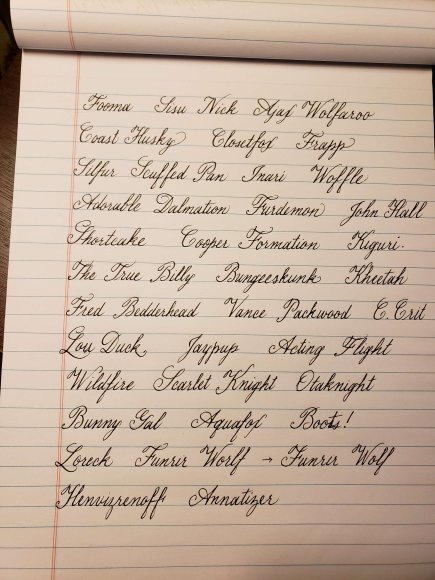 Fooma Sisu Nick Ajax Wolfaroo
Coast Husky Closetfox Frapp
Silfur Scuffed Pan Inari Woffle
Adorable Dalmation Furdemon John Hall
Shortcake Cooper Formation Kiguri.
The True Billy Bungeeskunk Kheetah
Fred Bedderhead Vance Packwood C. Crit
Lou Duck Jaypup Acting Flight
Wildfire Scarlet Knight Otaknight
Bunny Gal Aquafox Boots!
Loreck Funrir Worlf → Funrir Wolf
Henvizrenoff! Annatizer